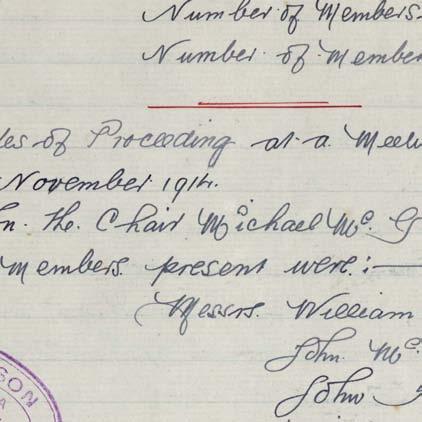 Number of Members
Number of Member
les of Proceeding at a Meeti
November 1914.
In. the. Chair Michael Mc. G
Members present were:—
Messrs. William
John. Mc.
John
SON
A